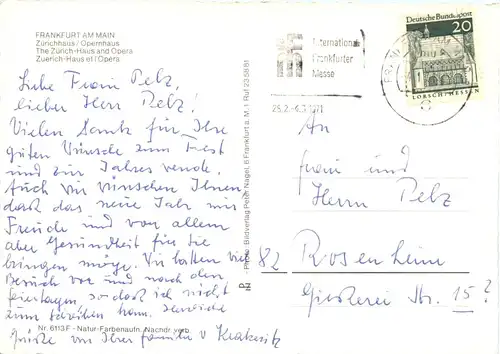 FRANKFURT AM MAIN
Zürichhaus / Opernhaus
The Zürich-Haus and Opera
Zuerich-Haus et l'Opera
Liebe Frau Pelz,
lieber Herr Pelz!
Vielen Dank für Ihre
guten Wünsche zum Fest
und zur Jahreswende.
Auch wir wünschen Ihnen
daß das neue Jahr nur
Freude und vor allem
aber Gesundheit für Sie
bringen möge. Wir hatten viel
Besuch vor und nach den
Feiertagen, so daß ich nicht
zum Schreiben kam. Herzliche
Grüße von Ihrer Familie v
Nr. 6113F - Natur-Farbenaufn. Nachdr. verb.
Bildverlag Peter Nagel, 6 Frankfurt a. M. 1 Ruf 23 58 81
Internationale
Frankfurter
Messe
28.2.-4.3.1971
Deutsche Bundespost
20
LORSCH / HESSEN
An
Frau und
Herrn Pelz
82 Rosenheim
Giesserei Str. 15?